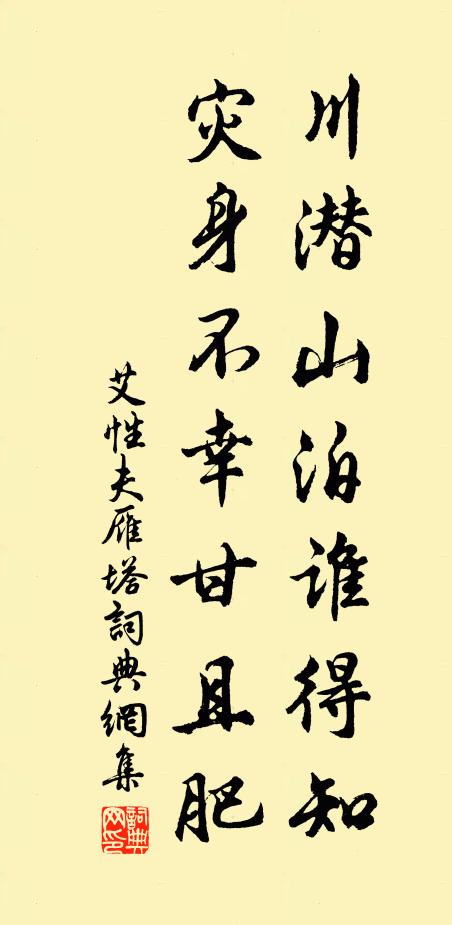 川潜山泊谁得知
灾身不幸甘且肥
艾性夫雁塔詞典網集
詞典网印